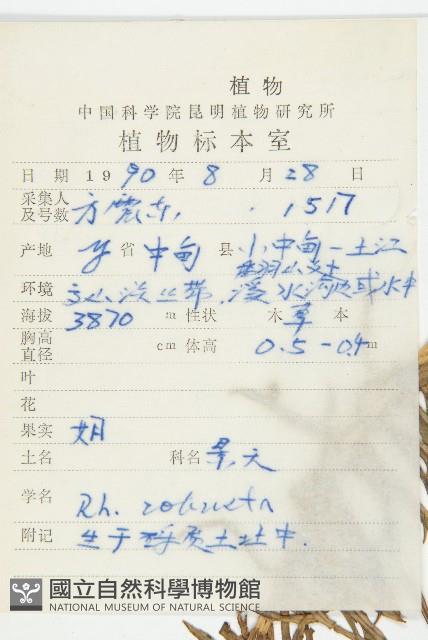 植物
中国科学院昆明植物研究所
植物标本室
日期 1990年 8月 28日
采集人及号数 方震东, 1517
产地 省 中甸 县 小中甸－土江
环境 水中
海拔 3870 m 性状 木 草 本
胸高直径 cm 体高 0.5－0.4m
叶
花
果实
土名 科名 景天
学名 Rh.
附记 生于 质土壮中.
國立自然科學博物館
NATIONAL MUSEUM OF NATURAL SCIENCE